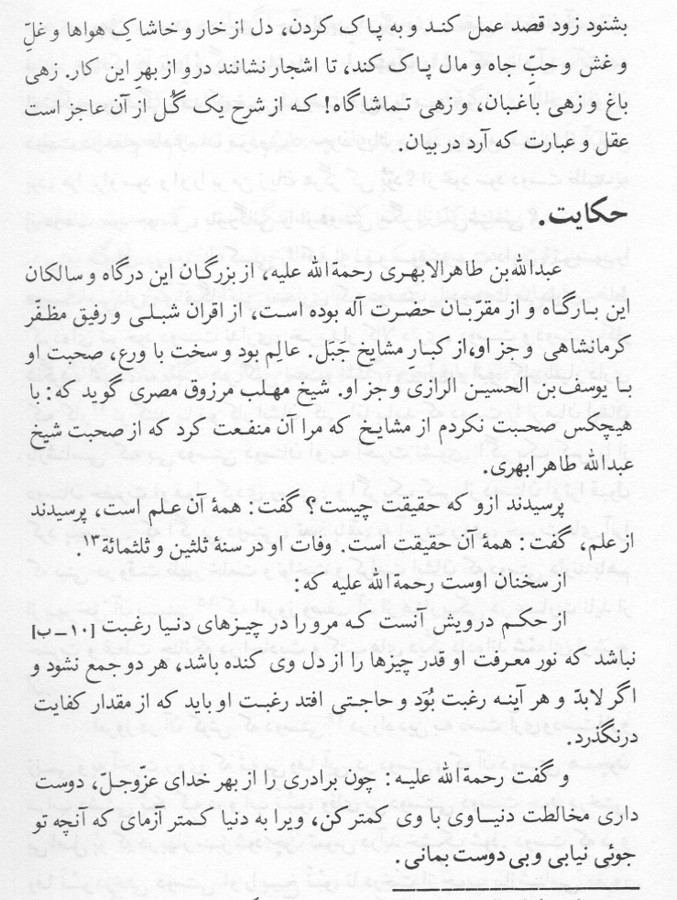 بشنود زود قصد عمل کند و به پاک کردن، دل از خار و خاشاکِ هواها و غلِّ
و غش و حب جاه و مال پاک کند، تا اشجار نشانند درو از بهرِ این کار. زهی
باغ و زهی باغبان، و زهی تماشاگاه! که از شرح یک گُل از آن عاجز است
عقل و عبارت که آرد در بیان.
حکایت.
عبدالله بن طاهر الابهری رحمة الله علیه، از بزرگان این درگاه و سالکان
این بارگاه و از مقرّبان حضرت آله بوده است، از اقران شبلی و رفیق مظفّر
کرمانشاهی و جز او، از کبار مشایخ جَبَل. عالِم بود و سخت با ورع، صحبت او
با یوسف بن الحسین الرازی و جز او. شیخ مهلب مرزوق مصری گوید که: با
هیچکس صحبت نکردم از مشایخ که مرا آن منفعت کرد که از صحبت شیخ
عبدالله طاهر ابهری.
پرسیدند ازو که حقیقت چیست؟ گفت: همهٔ آن علم است، پرسیدند
از علم، گفت: همهٔ آن حقیقت است. وفات او در سنهٔ ثلثین و ثلثمائة۱۳.
از سخنان اوست رحمة الله علیه که:
از حکم درویش آنست که مرو را در چیزهای دنیا رغبت [۱۰ــب]
نباشد که نور معرفت او قدر چیزها را از دل وی کنده باشد، هر دو جمع نشود و
اگر لابدّ و هر آینه رغبت بُوَد و حاجتی افتد رغبت او باید که از مقدار کفایت
درنگذرد.
و گفت رحمة الله علیه: چون برادری را از بهر خدای عزّوجلّ، دوست
داری مخالطت دنیاوی با وی کمتر کن، ویرا به دنیا کمتر آزمای که آنچه تو
جوئی نیابی و بی دوست بمانی.